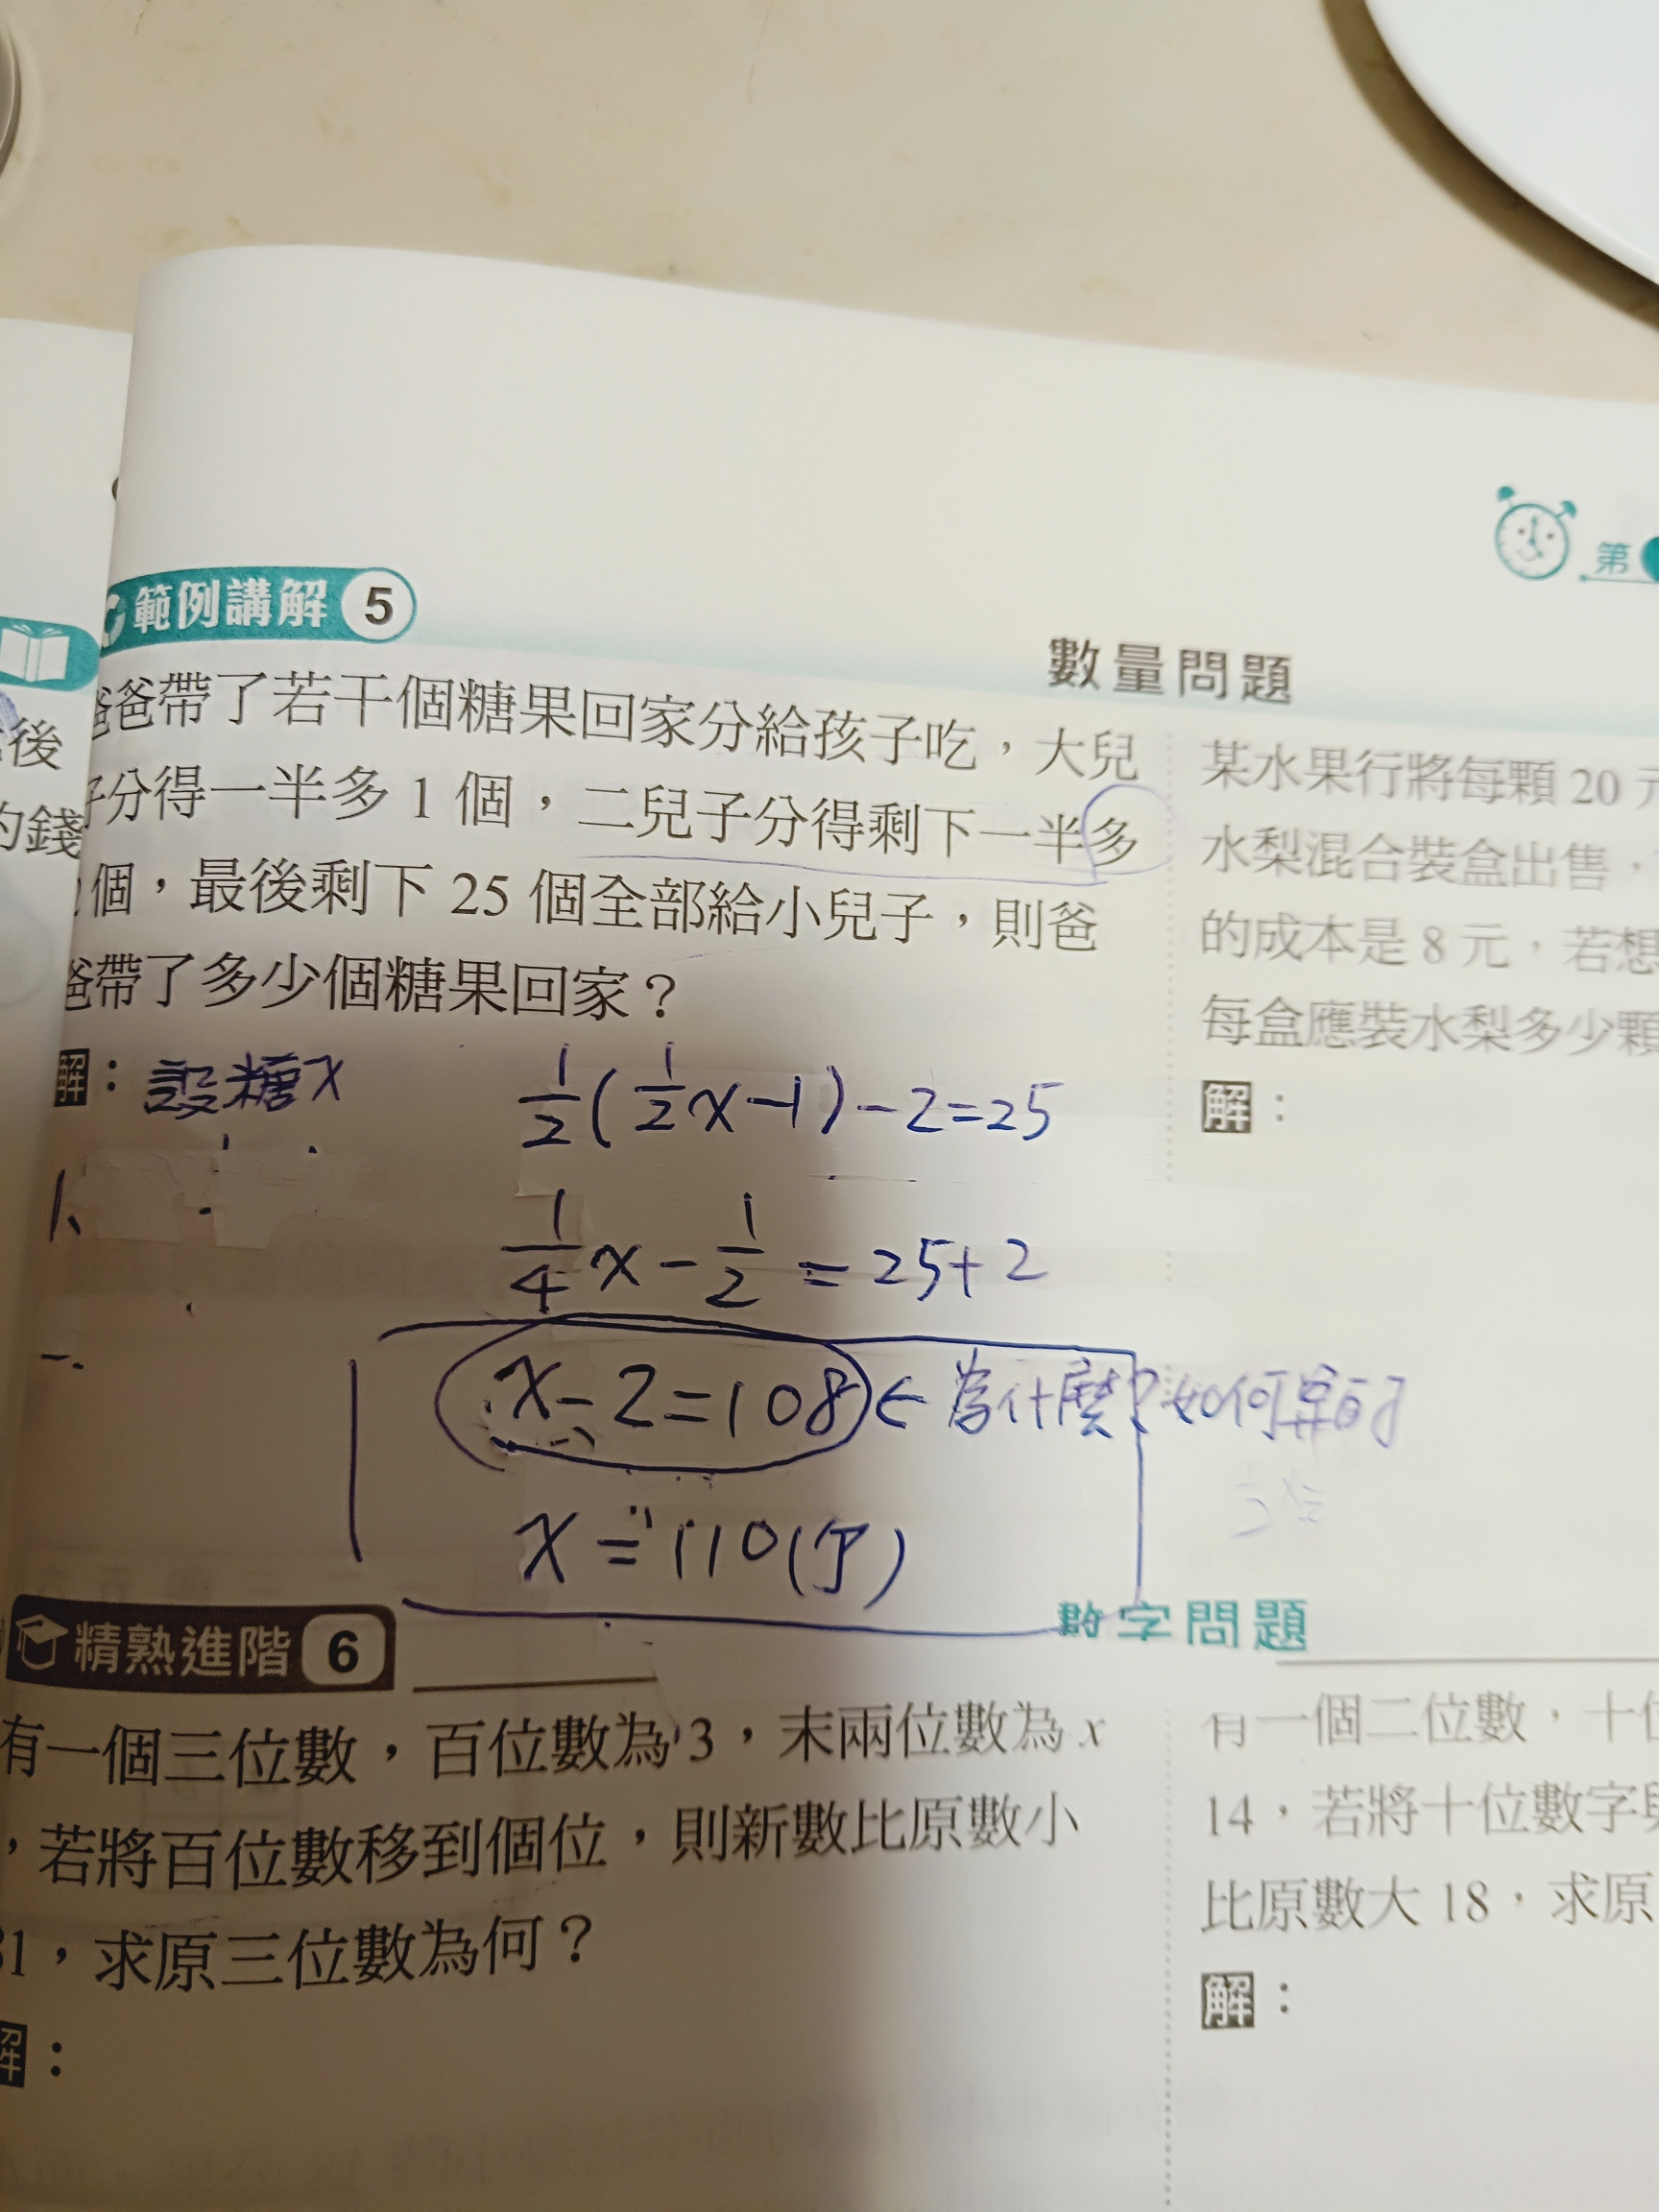 後
的錢
第
範例講解 5
數量問題
爸爸帶了若干個糖果回家分給孩子吃，大兒
子分得一半多 1 個，二兒子分得剩下一半多
2個，最後剩下 25 個全部給小兒子，則爸
爸帶了多少個糖果回家？
解：設糖x
1/2(1/2x-1)-2=25
1/4x-1/2=25+2
x-2=108←為什麼？如何算的
x=110(個)
某水果行將每顆 20 元
水梨混合裝盒出售，
的成本是 8 元，若想
每盒應裝水梨多少顆
解：
精熟進階 6
數字問題
有一個三位數，百位數為 3，末兩位數為 x
，若將百位數移到個位，則新數比原數小
81，求原三位數為何？
解：
有一個二位數，十位
14，若將十位數字與
比原數大 18，求原
解：